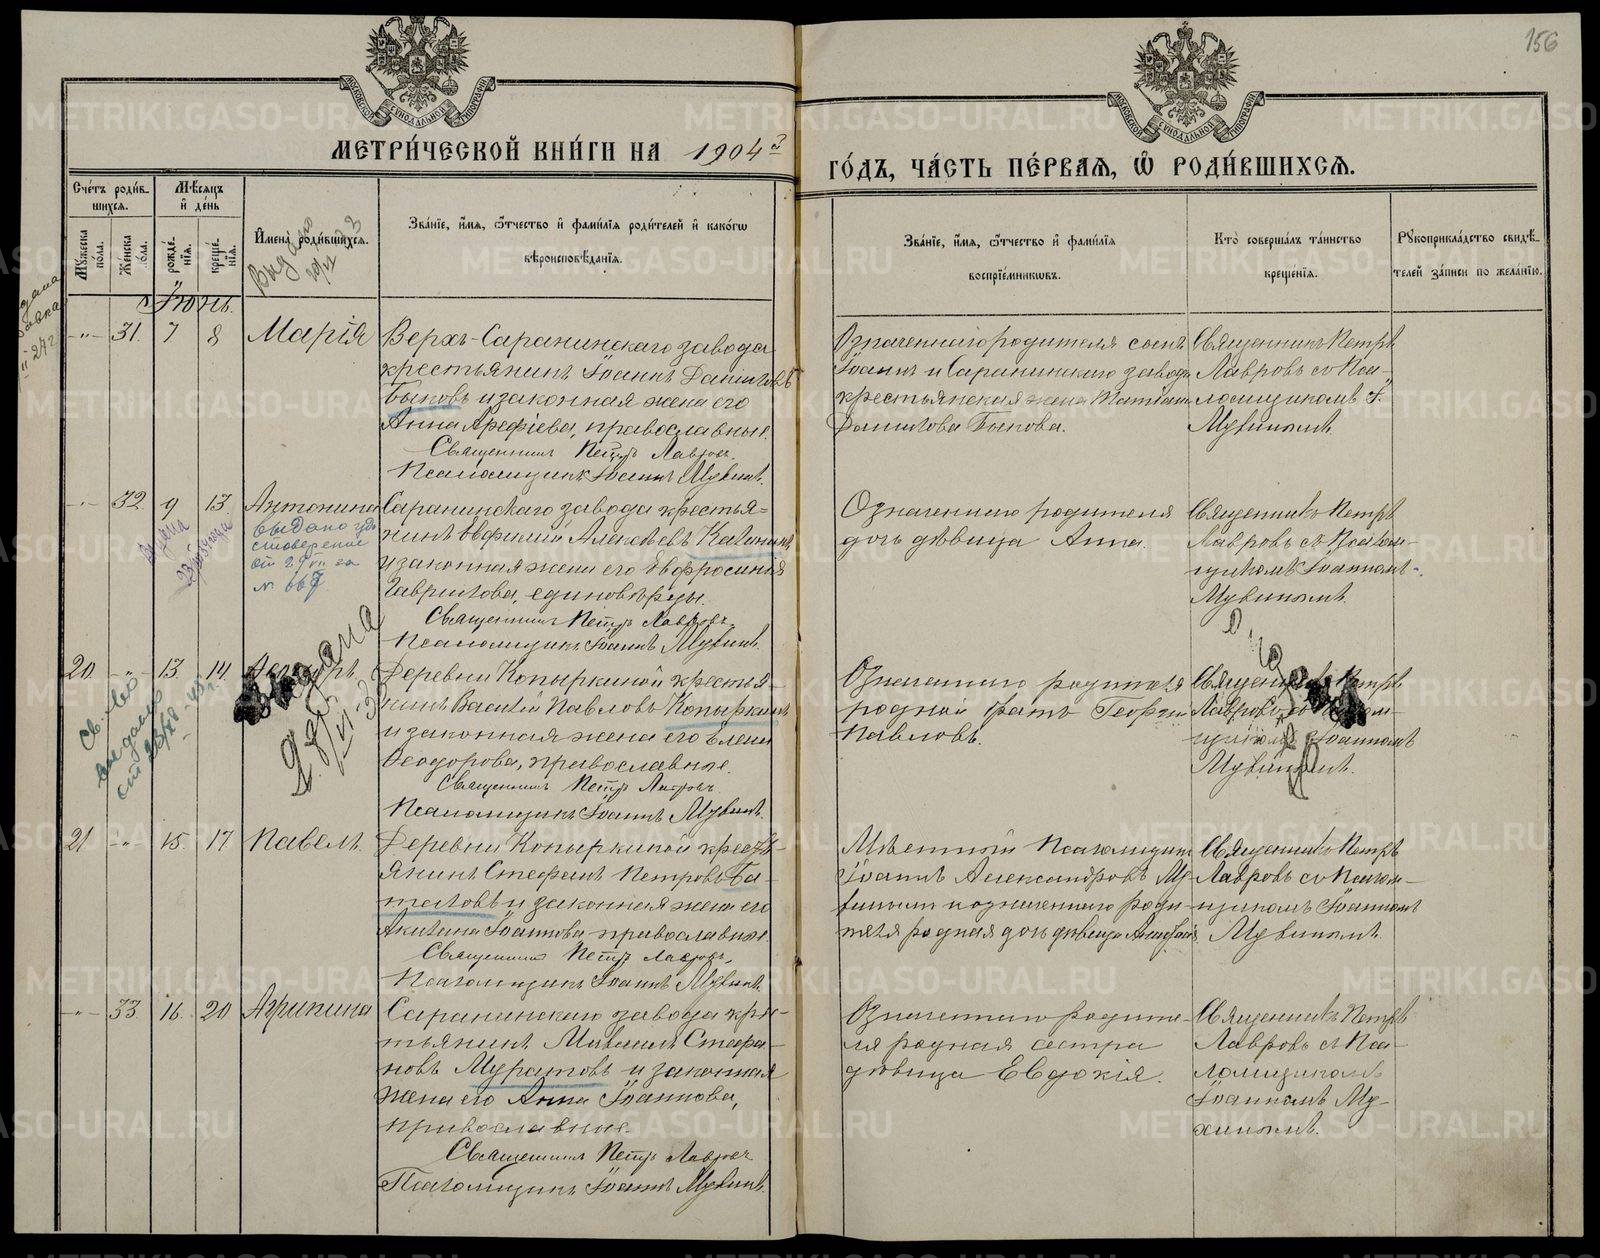 156
МЕТРИ́ЧЕСКОЙ КНИ́ГИ НА 1904 ГО́ДЪ, ЧА́СТЬ ПЕ́РВАЯ, Ѡ РОДИ́ВШИХСЯ.
Сче́тъ роди́вшихся.
Му́жеска по́ла.
Же́нска по́ла.
Мѣ́сяцъ и҆ де́нь
рожде́нїя.
креще́нїя.
И҆мена̀ роди́вшихся.
Зва́нїе, и҆́мя, ѻ҆́тчество и҆ фами́лїя роди́телей и҆ како́гѡ
вѣроисповѣ́данїя.
Зва́нїе, и҆́мя, ѻ҆́тчество и҆ фами́лїя
воспрїе́мниковъ.
Кто̀ соверша́лъ та́инство
креще́нїя.
Рꙋкоприкла́дство свидѣ́-
телей за́писи по жела́нїю.
Іюнь.
-„- 31. 7 8 Марія
Верхъ-Саранинскаго завода
крестьянинъ Іоаннъ Даніиловъ
Быковъ и законная жена его
Анна Арефіева, православные.
Священникъ Петръ Лавровъ.
Псаломщикъ Іоаннъ Мухинъ.
Означеннаго родителя сынъ
Іоаннъ и Саранинскаго завода
крестьянская жена
Даниилова Быкова.
Священникъ Петръ
Лавровъ со Пса-
ломщикомъ І.
Мухинымъ.
-„- 32. 9 13. Антонина
Саранинскаго завода крестья-
нинъ Евфимій Алексѣевъ
и законная жена его Евфросинія
Гавриилова, единовѣрцы.
Священникъ Петръ Лавровъ.
Псаломщикъ Іоаннъ Мухинъ.
Означеннаго родителя
дочь дѣвица Анна.
Священникъ Петръ
Лавровъ съ Псалом-
щикомъ Іоанномъ
Мухинымъ.
выдано удо
стоверение
20. -„- 13. 14.
Деревни Копыркиной крестья-
нинъ Василій Павловъ Копыркинъ
и законная жена его Елена
Ѳеодорова, православные.
Священникъ Петръ Лавровъ
Псаломщикъ Іоаннъ Мухинъ.
Означеннаго родителя
родной братъ Георгій
Павловъ.
Священникъ Петръ
Лавровъ со Псалом-
щикомъ Іоанномъ
Мухинымъ.
Выдана
21. -„- 15. 17. Павелъ.
Деревни Копыркиной кресть-
янинъ Стефанъ Петровъ Ба-
таловъ и законная жена его
Акилина Іоаннова православные.
Священникъ Петръ Лавровъ.
Псаломщикъ Іоаннъ Мухинъ.
Мѣстный Псаломщикъ
Іоаннъ Александровъ Му-
хинъ и означеннаго роди-
теля родная дочь дѣвица
Священникъ Петръ
Лавровъ со Псалом-
щикомъ Іоанномъ
Мухинымъ.
-„- 33. 16. 20 Агрипина
Саранинскаго завода крес-
тьянинъ Михаилъ Стефа-
новъ Муратовъ и законная
жена его Анна Іоаннова,
православные.
Священникъ Петръ Лавровъ
Псаломщикъ Іоаннъ Мухинъ.
Означеннаго родите-
ля родная сестра
дѣвица Евдокія.
Священникъ Петръ
Лавровъ съ Пса-
ломщикомъ
Іоанномъ Му-
хинымъ.
METRIKI.GASO-URAL.RU